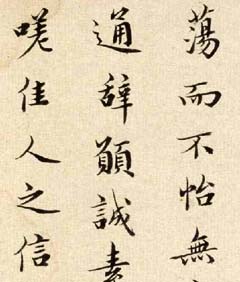 蕩而不怡無
通辭願誠素
嗟佳人之信